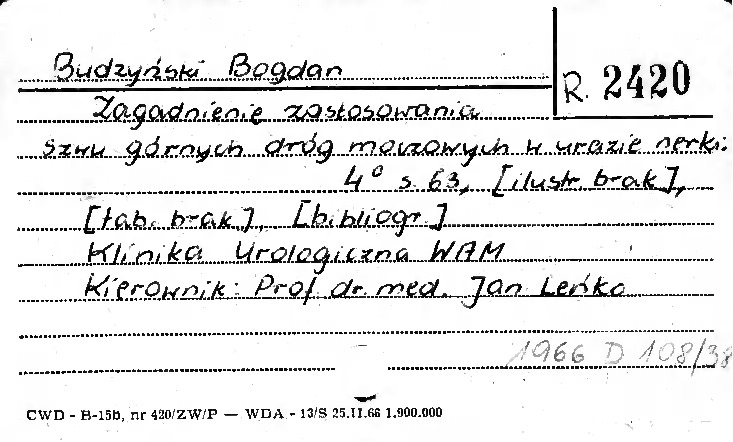 Budzyński Bogdan
R. 2420
Zagadnienie zastosowania
szwu górnych dróg moczowych w urazie nerki:
4° s. 63, [ilustr. brak],
[tab. brak], [bibliogr.]
Klinika Urologiczna WAM
Kierownik: Prof. dr. med. Jan Leńko
1966 D 108/38
CWD - B-15b, nr 420/ZW/P — WDA - 13/S 25.II.66 1.900.000